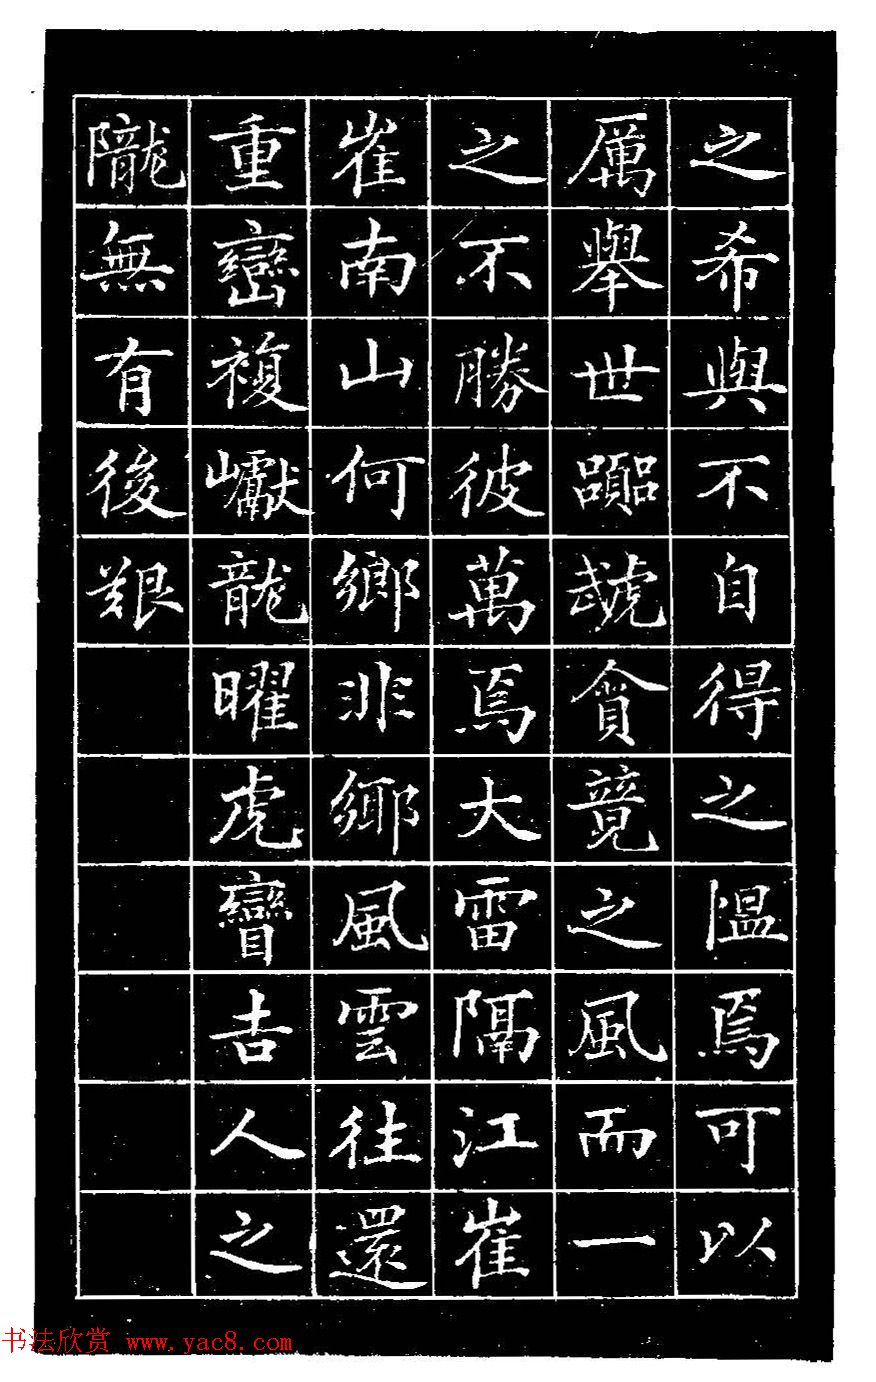 之希與不自得之愠焉可以
厲舉世囂號貪竟之風而一
之不勝彼萬焉大雷隔江崔
崔南山何鄉非鄉風雲往還
重巒複巘龍曜虎矕吉人之
隴無有後艱
书法欣赏 www.yac8.com